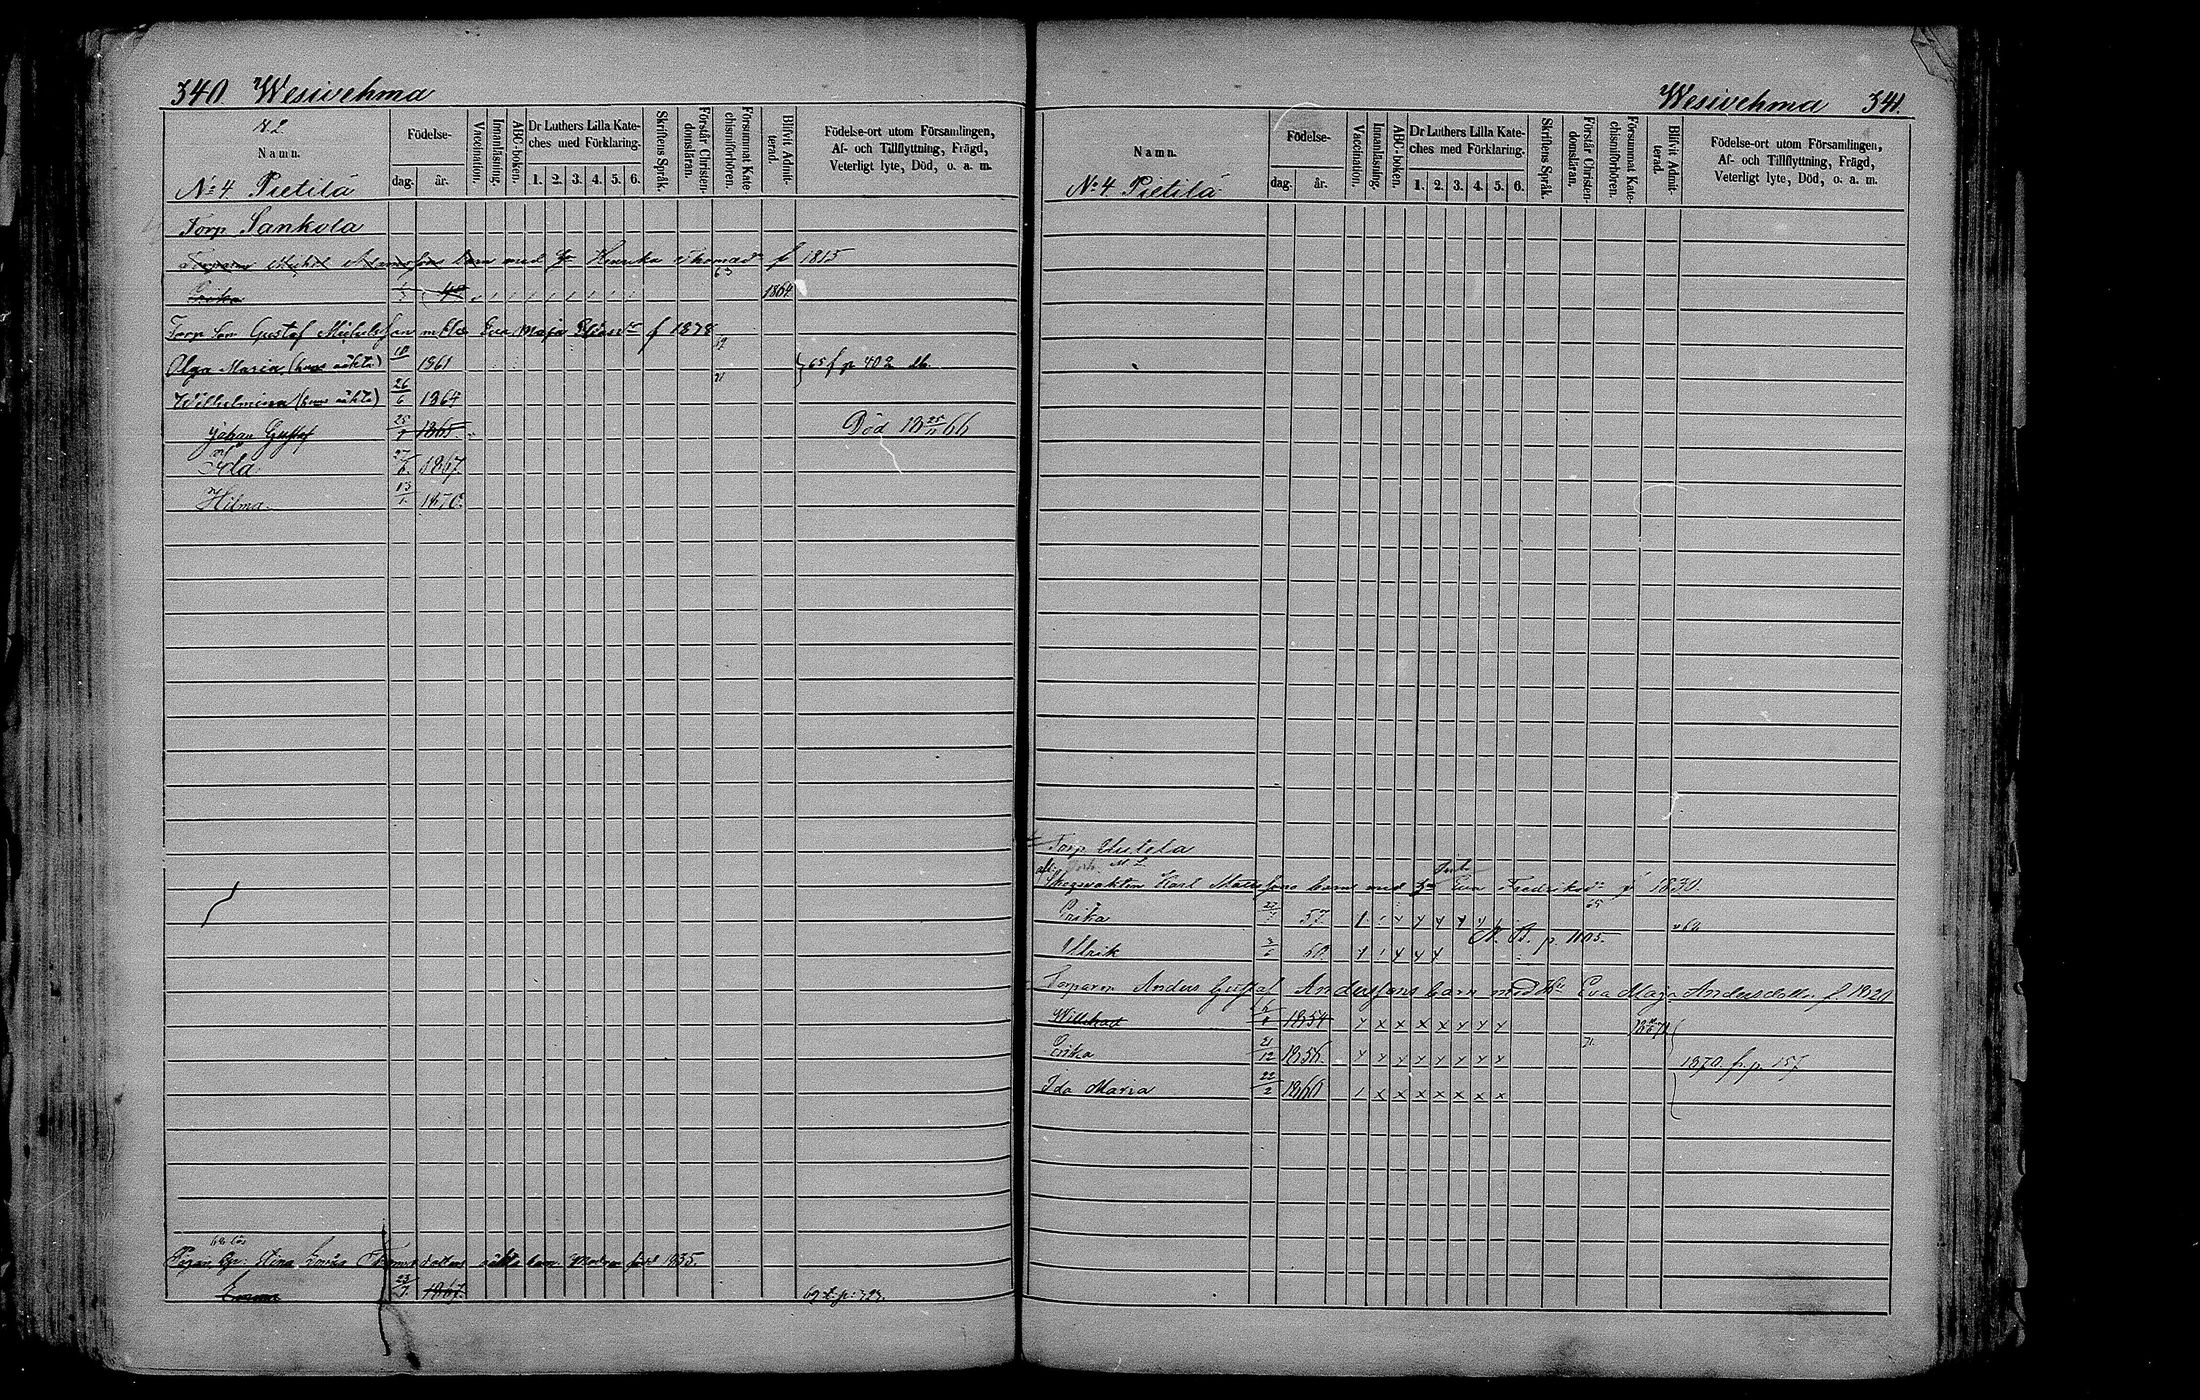 340. Wesivehma
N:o 2
Namn.
Födelse-
dag. år.
Vaccination.
Innanläsning.
ABC-boken.
Dr Luthers Lilla Kate-
ches med Förklaring.
1. 2. 3. 4. 5. 6.
Skriftens Språk.
Förstår Christen-
domsläran.
Försummat Kate
chismiförhören.
Blifvit Admit-
terad.
Födelse-ort utom Församlingen,
Af- och Tillflyttning, Frägd,
Veterligt lyte, Död, o. a. m.
No 4 Pietilä
Torp Sankola
Michel barn med Henrika Thomasdr f 1815
63
Erika 1864
Torp Son Gustaf Michelsson m Eva Maja f 1878
Olga Maria (hans oäkta) 1861 65 f p 402
Wilhelmina (hans oäkta) 26/6 1864
Johan Gustaf 25/9 1865 Död 18 25/11 66
Ida 27/6 1867.
Hilma 13/1 1870.
Pigan Stina Lovisa oäkta barn Modren född 1835.
Emma 23/7 1867. 69 t. p: 323.
Wesivehma 341.
Namn.
Födelse-
dag. år.
Vaccination.
Innanläsning.
ABC-boken.
Dr Luthers Lilla Kate-
ches med Förklaring.
1. 2. 3. 4. 5. 6.
Skriftens Språk.
Förstår Christen-
domsläran.
Försummat Kate-
chismiförhören.
Blifvit Admit-
terad.
Födelse-ort utom Församlingen,
Af- och Tillflyttning, Frägd,
Veterligt lyte, Död, o. a. m.
No 4 Pietilä
Torp Uutela
Skogsvakten Karl Matssons barn med Fredriksdr f 1830.
Erika 57. 65
Ulrik 60 N. B. p. 1105.
Torparen Anders Gustaf Anderssons barn med Eva Maja Andersdotter f. 1820
Willehad 1854
Erika 21/12 1856. 71. 1870. fr. p. 157
Ida Maria 22/2 1860